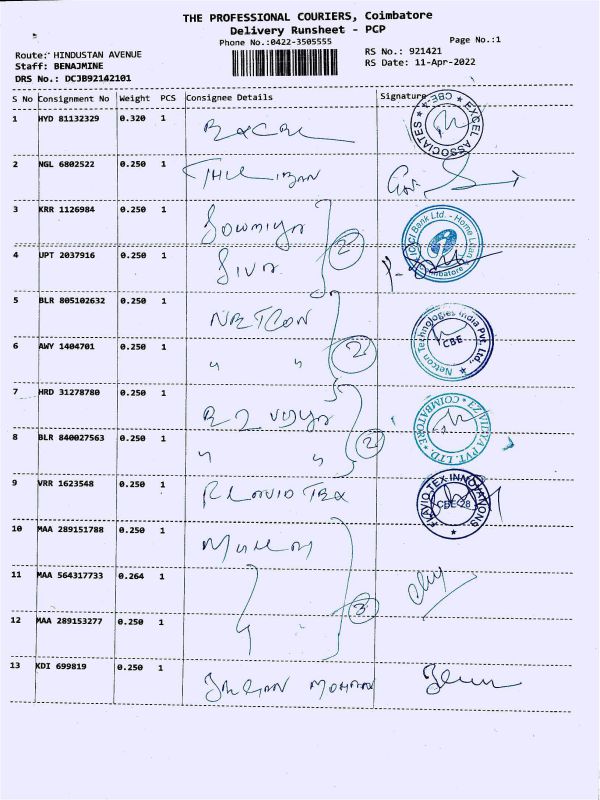 THE PROFESSIONAL COURIERS, Coimbatore
Delivery Runsheet - PCP
Phone No.:0422-3505555
Page No.:1
Route: HINDUSTAN AVENUE
RS No.: 921421
Staff: BENAJMINE
RS Date: 11-Apr-2022
DRS No.: DCJB92142101
S No Consignment No Weight PCS Consignee Details Signature
1 HYD 81132329 0.320 1
CBE-4 ★ EXCEL ASSOCIATES ★
2 NGL 6802522 0.250 1
3 KRR 1126984 0.250 1 Sowmiya
ICICI Bank Ltd. - Home Loan
Coimbatore
4 UPT 2037916 0.250 1 Siva
2
5 BLR 805102632 0.250 1 NETCON
Netcon Technologies India Pvt. Ltd.,
CBE
6 AWY 1404701 0.250 1 " "
2
7 HRD 31278780 0.250 1 EZ Vidya
EZ VIDYA PVT. LTD. ★ COIMBATORE ★
8 BLR 840027563 0.250 1 " "
2
9 VRR 1623548 0.250 1 Flavio Tex
FLAVIO TEX INNOVATIONS
CBE-28
10 MAA 289151788 0.250 1
11 MAA 564317733 0.264 1
12 MAA 289153277 0.250 1
3
13 KDI 699819 0.250 1 Jagan Mohan